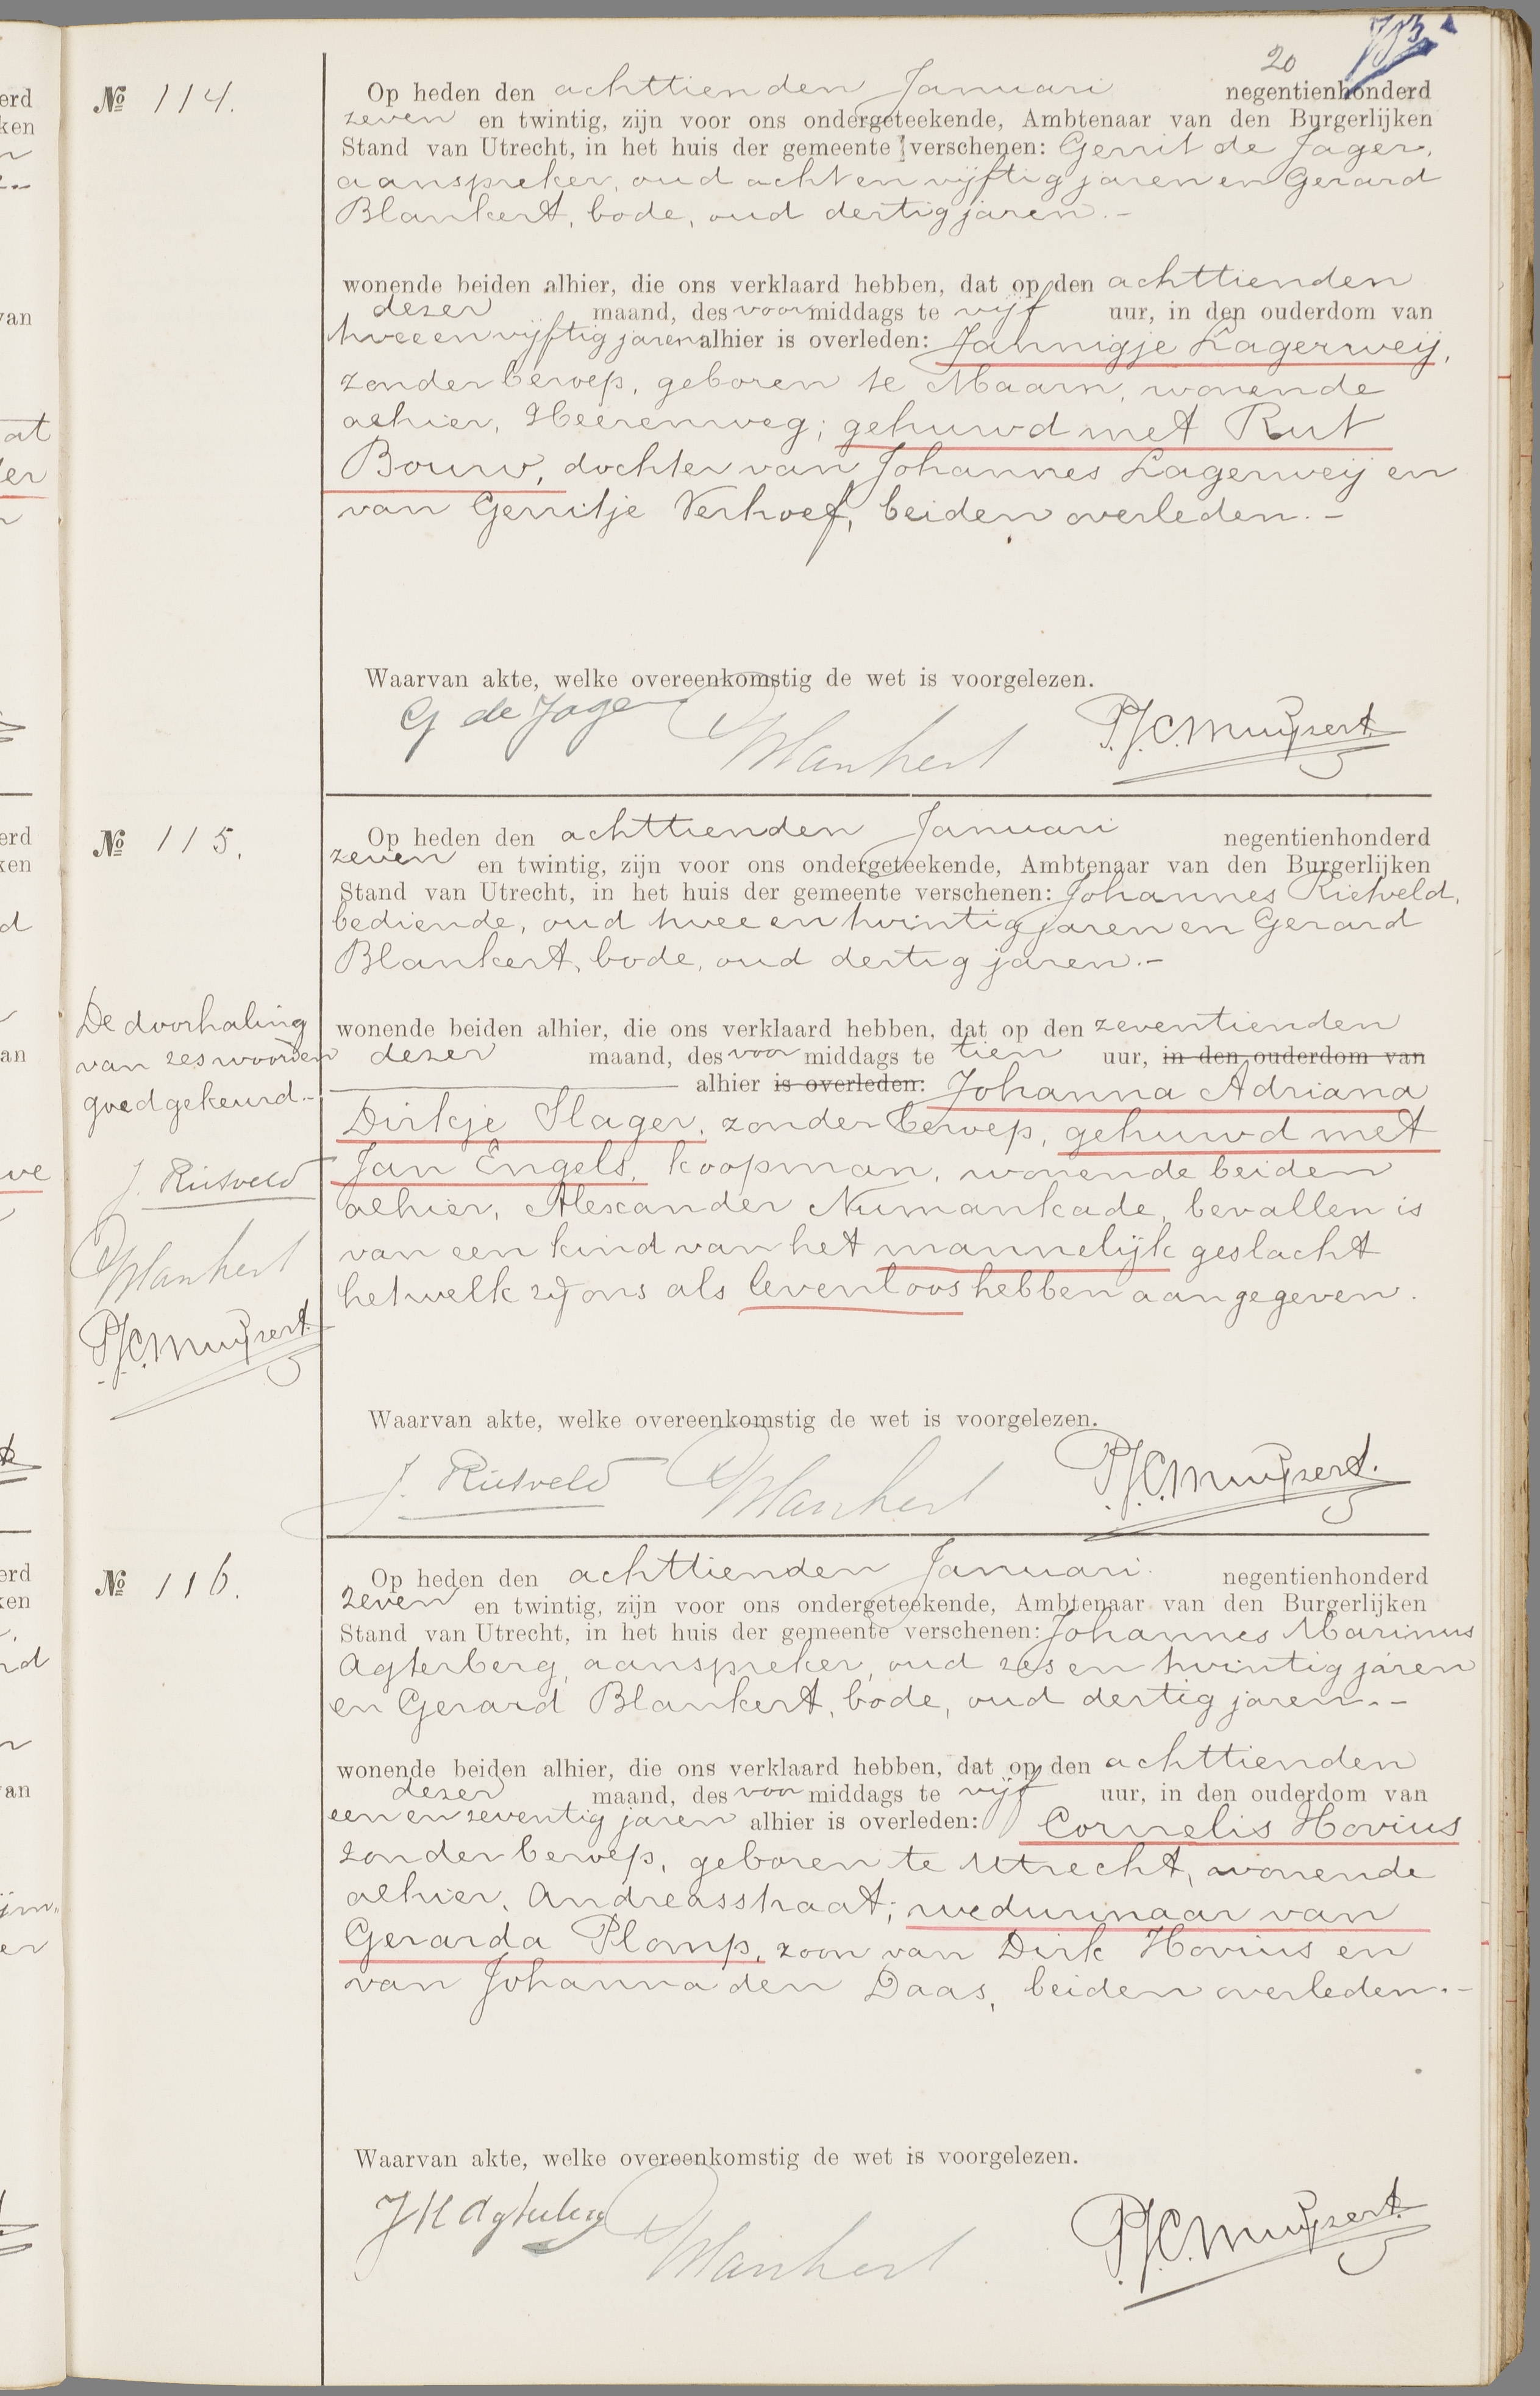 20
No 114.
Op heden den achttienden Januari negentienhonderd
zeven en twintig, zijn voor ons ondergeteekende, Ambtenaar van den Burgerlijken
Stand van Utrecht, in het huis der gemeente verschenen: Gerrit de Jager,
aanspreker, oud acht en vijftig jaren en Gerard
Blankert, bode, oud dertig jaren.-
wonende beiden alhier, die ons verklaard hebben, dat op den achttienden
dezer maand, des voormiddags te vijf uur, in den ouderdom van
twee en vijftig jaren alhier is overleden: Jannigje Lagerweij,
zonder beroep, geboren te Maarn, wonende
alhier, Heerenweg; gehuwd met Rut
Bouw, dochter van Johannes Lagerweij en
van Gerritje Verhoef, beiden overleden.-
Waarvan akte, welke overeenkomstig de wet is voorgelezen.
G de Jager Blankert P.J.C. Muijzert
No 115.
Op heden den achttienden Januari negentienhonderd
zeven en twintig, zijn voor ons ondergeteekende, Ambtenaar van den Burgerlijken
Stand van Utrecht, in het huis der gemeente verschenen: Johannes Rietveld,
bediende, oud twee en twintig jaren en Gerard
Blankert, bode, oud dertig jaren.-
wonende beiden alhier, die ons verklaard hebben, dat op den zeventienden
dezer maand, des voormiddags te tien uur, in den ouderdom van
alhier is overleden: Johanna Adriana
Dirkje Slager, zonder beroep, gehuwd met
Jan Engels, koopman, wonende beiden
alhier, Alexander Numankade, bevallen is
van een kind van het mannelijk geslacht
hetwelk zij ons als levenloos hebben aangegeven.
De doorhaling
van zes woorden
goedgekeurd.-
J. Rietveld
Blankert
P.J.C. Muijzert
Waarvan akte, welke overeenkomstig de wet is voorgelezen.
J. Rietveld Blankert P.J.C. Muijzert.
No 116.
Op heden den achttienden Januari. negentienhonderd
zeven en twintig, zijn voor ons ondergeteekende, Ambtenaar van den Burgerlijken
Stand van Utrecht, in het huis der gemeente verschenen: Johannes Marinus
Agterberg, aanspreker, oud zes en twintig jaren
en Gerard Blankert, bode, oud dertig jaren.-
wonende beiden alhier, die ons verklaard hebben, dat op den achttienden
dezer maand, des voormiddags te vijf uur, in den ouderdom van
een en zeventig jaren alhier is overleden: Cornelis Hovius
zonder beroep, geboren te Utrecht, wonende
alhier, Andreasstraat; weduwnaar van
Gerarda Plomp, zoon van Dirk Hovius en
van Johanna den Daas, beiden overleden.-
Waarvan akte, welke overeenkomstig de wet is voorgelezen.
J M Agterberg Blankert P.J.C. Muijzert